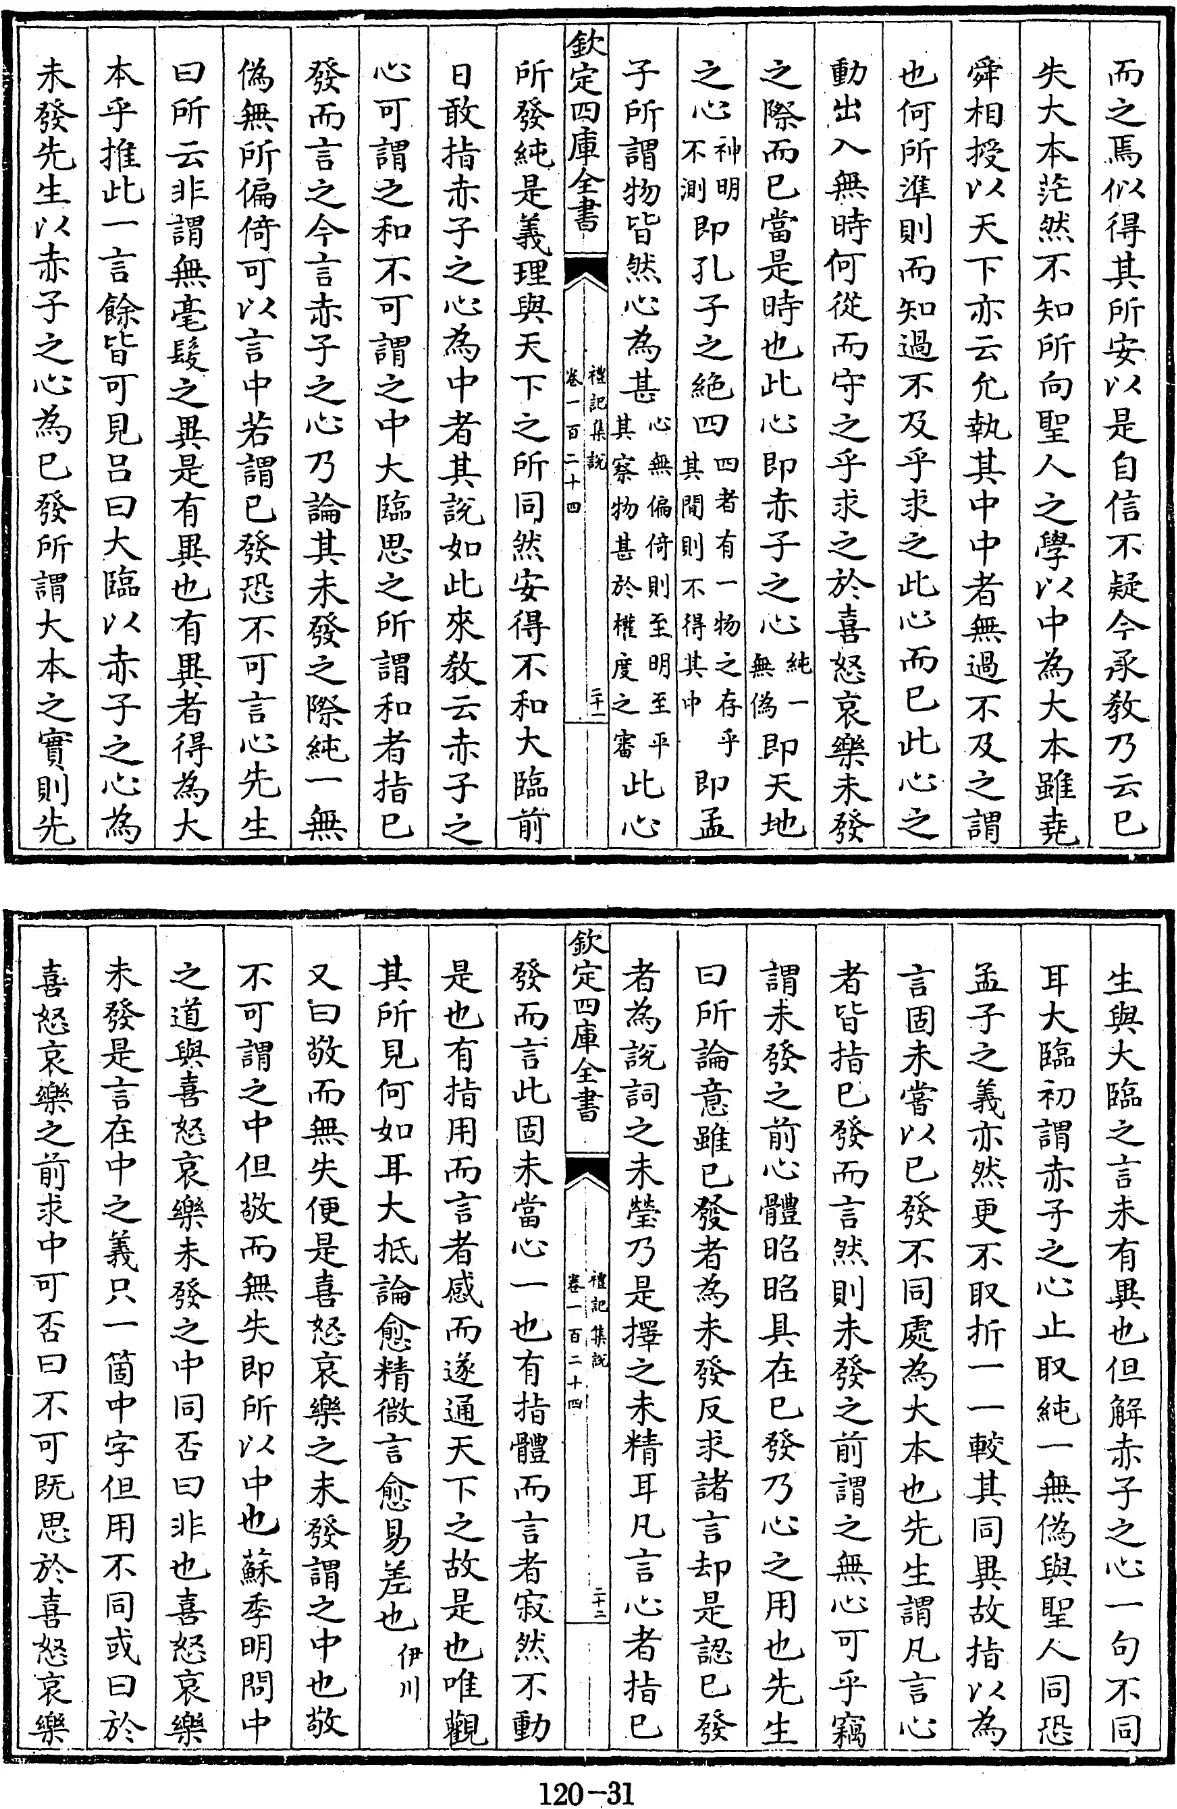 而之焉似得其所安以是自信不疑今承教乃云已
失大本茫然不知所向聖人之學以中為大本雖堯
舜相授以天下亦云允執其中中者無過不及之謂
也何所準則而知過不及乎求之此心而已此心之
動出入無時何從而守之乎求之於喜怒哀樂未發
之際而已當是時也此心即赤子之心純一無偽即天地
之心神明不測即孔子之絕四四者有一物之存乎其間則不得其中即孟
子所謂物皆然心為甚心無偏倚則至明至平其察物甚於權度之審此心
欽定四庫全書
禮記集說
卷一百二十四
二十一
所發純是義理與天下之所同然安得不和大臨前
日敢指赤子之心為中者其說如此來教云赤子之
心可謂之和不可謂之中大臨思之所謂和者指已
發而言之今言赤子之心乃論其未發之際純一無
偽無所偏倚可以言中若謂已發恐不可言心先生
曰所云非謂無毫髮之異是有異也有異者得為大
本乎推此一言餘皆可見呂曰大臨以赤子之心為
未發先生以赤子之心為已發所謂大本之實則先
生與大臨之言未有異也但解赤子之心一句不同
耳大臨初謂赤子之心止取純一無偽與聖人同恐
孟子之義亦然更不取折一一較其同異故指以為
言固未嘗以已發不同處為大本也先生謂凡言心
者皆指已發而言然則未發之前謂之無心可乎竊
謂未發之前心體昭昭具在已發乃心之用也先生
曰所論意雖已發者為未發反求諸言却是認已發
者為說詞之未瑩乃是擇之未精耳凡言心者指已
欽定四庫全書
禮記集說
卷一百二十四
二十二
發而言此固未當心一也有指體而言者寂然不動
是也有指用而言者感而遂通天下之故是也唯觀
其所見何如耳大抵論愈精微言愈易差也伊川
又曰敬而無失便是喜怒哀樂之未發謂之中也敬
不可謂之中但敬而無失即所以中也蘇季明問中
之道與喜怒哀樂未發之中同否曰非也喜怒哀樂
未發是言在中之義只一箇中字但用不同或曰於
喜怒哀樂之前求中可否曰不可既思於喜怒哀樂
120-31